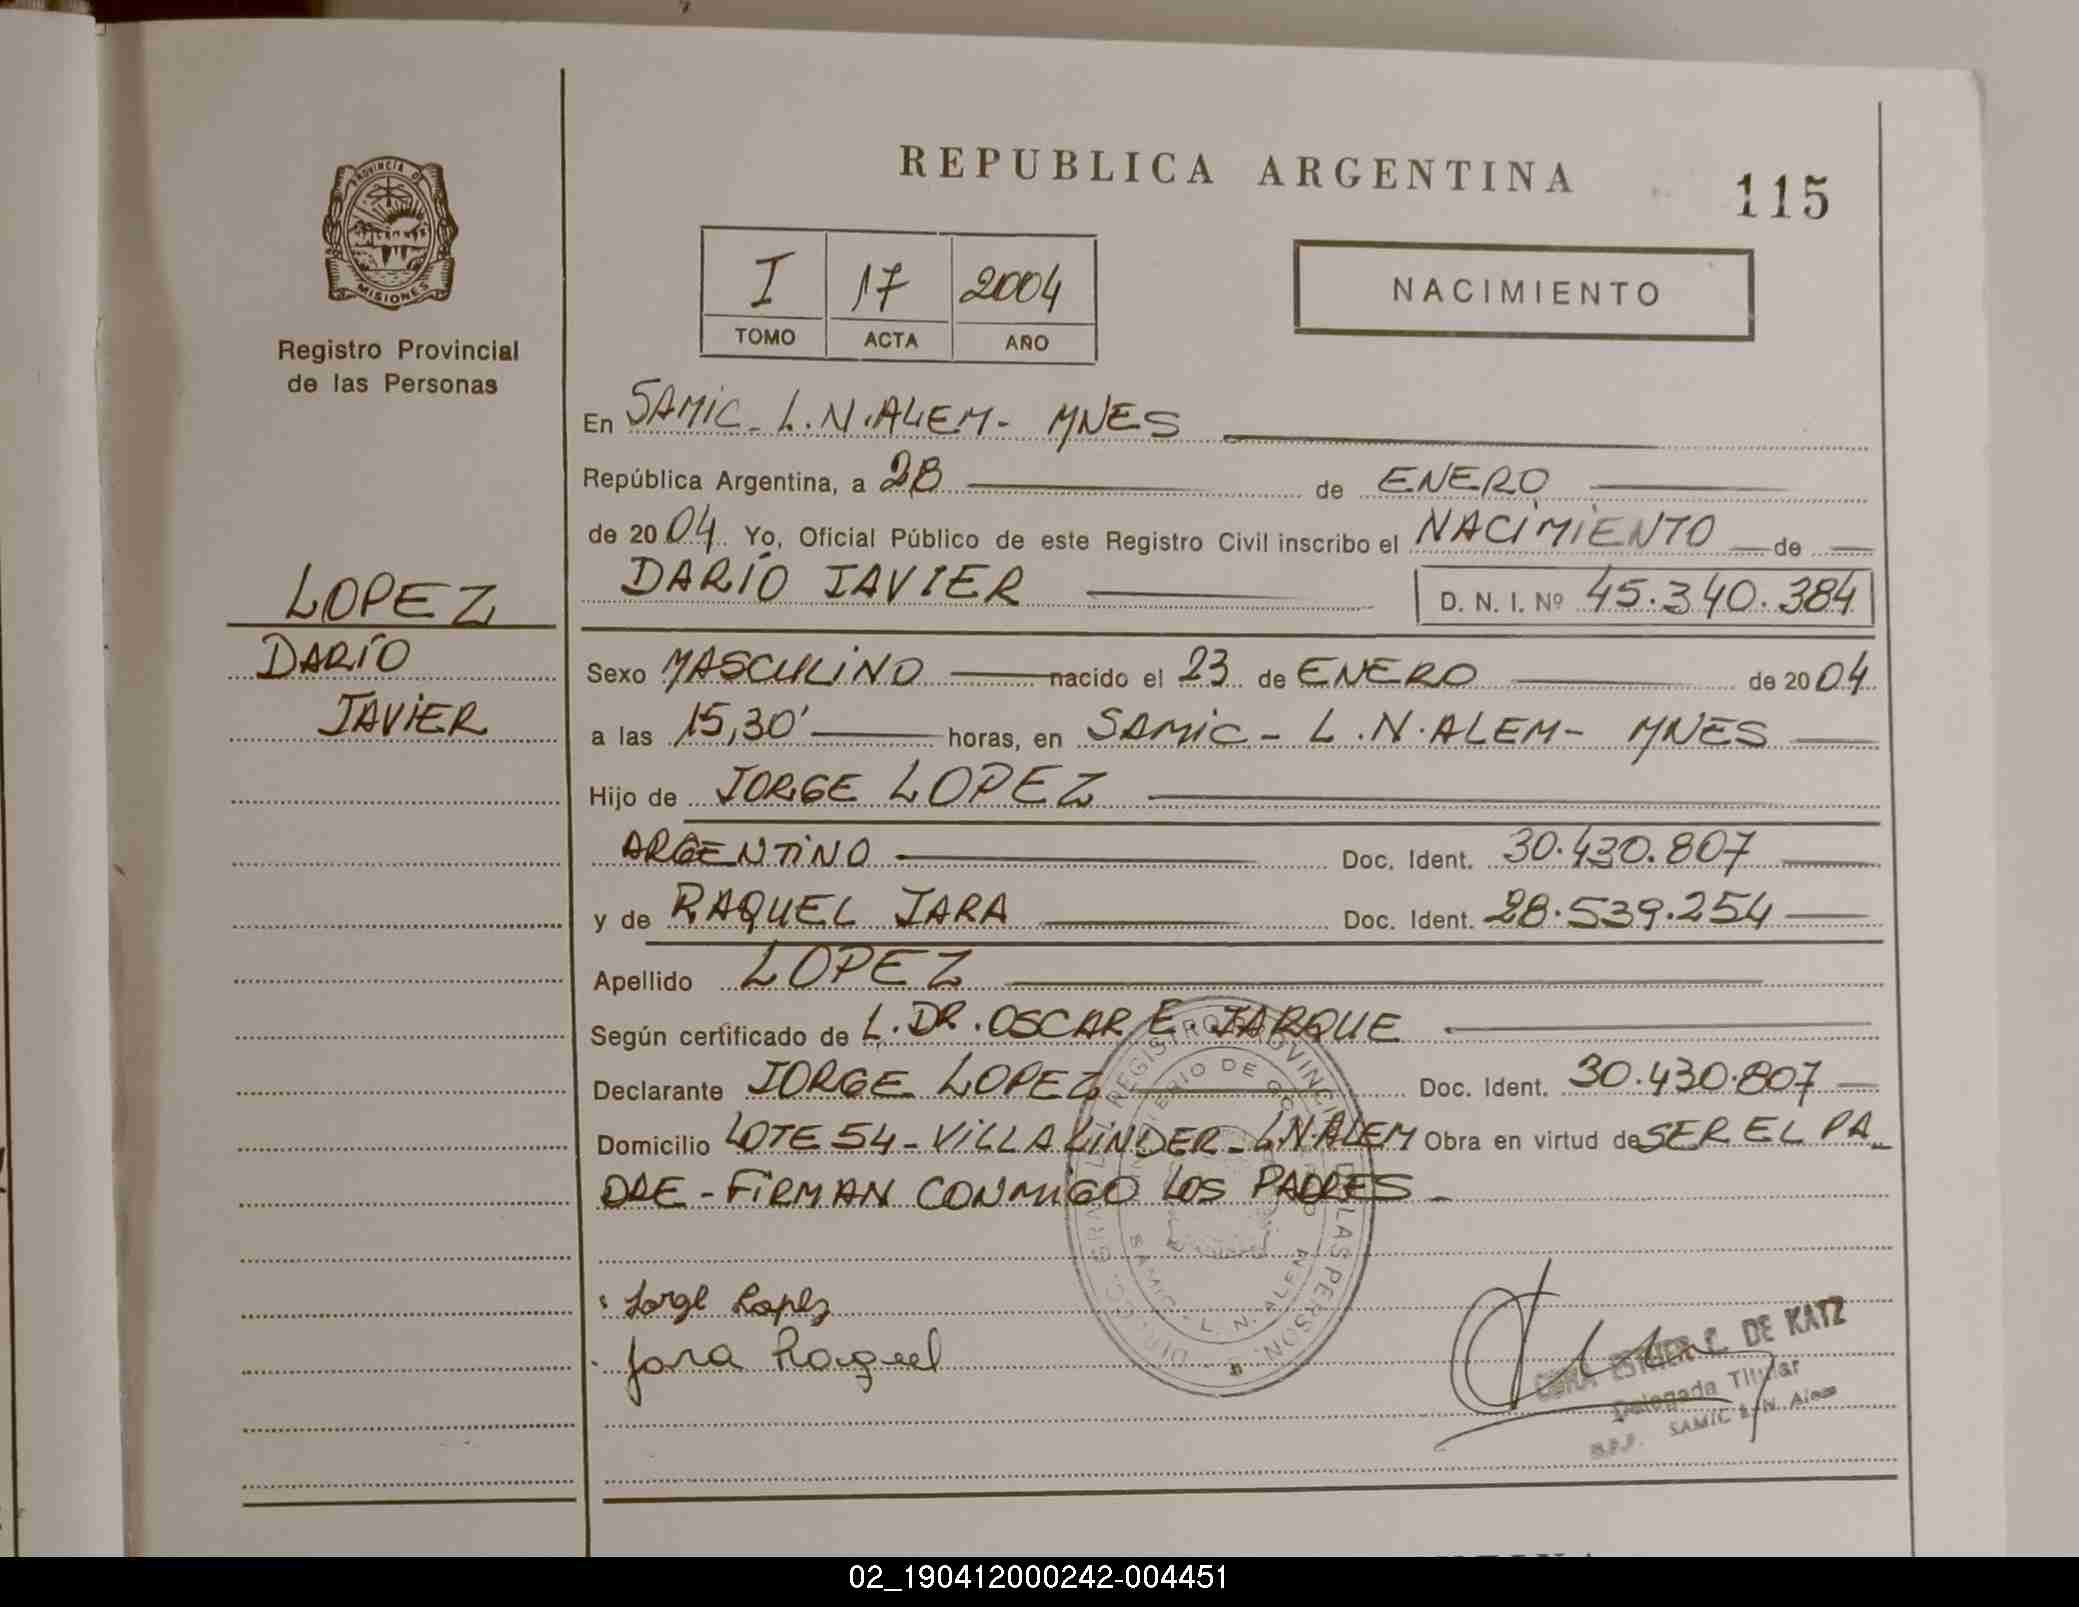 REPUBLICA ARGENTINA
115
PROVINCIA DE
MISIONES
Registro Provincial
de las Personas
I 17 2004
TOMO ACTA AÑO
NACIMIENTO
LOPEZ
DARÍO
JAVIER
En SAMIC - L.N.ALEM - MNES
República Argentina, a 28 de ENERO
de 2004 Yo, Oficial Público de este Registro Civil inscribo el NACIMIENTO de
DARÍO JAVIER D. N. I. Nº 45.340.384
Sexo MASCULINO nacido el 23 de ENERO de 2004
a las 15,30' horas, en SAMIC - L.N.ALEM - MNES
Hijo de JORGE LOPEZ
ARGENTINO Doc. Ident. 30.430.807
y de RAQUEL JARA Doc. Ident. 28.539.254
Apellido LOPEZ
Según certificado de L. DR. OSCAR E. JARQUE
Declarante JORGE LOPEZ Doc. Ident. 30.430.807
Domicilio LOTE 54 - VILLA LINDER - L.N.ALEM Obra en virtud de SER EL PA-
DRE - FIRMAN CONMIGO LOS PADRES -
Jorge Lopez
Jara Raquel
ESTHER C. DE KATZ
Delegada Titular
SAMIC L. N. Alem
02_190412000242-004451